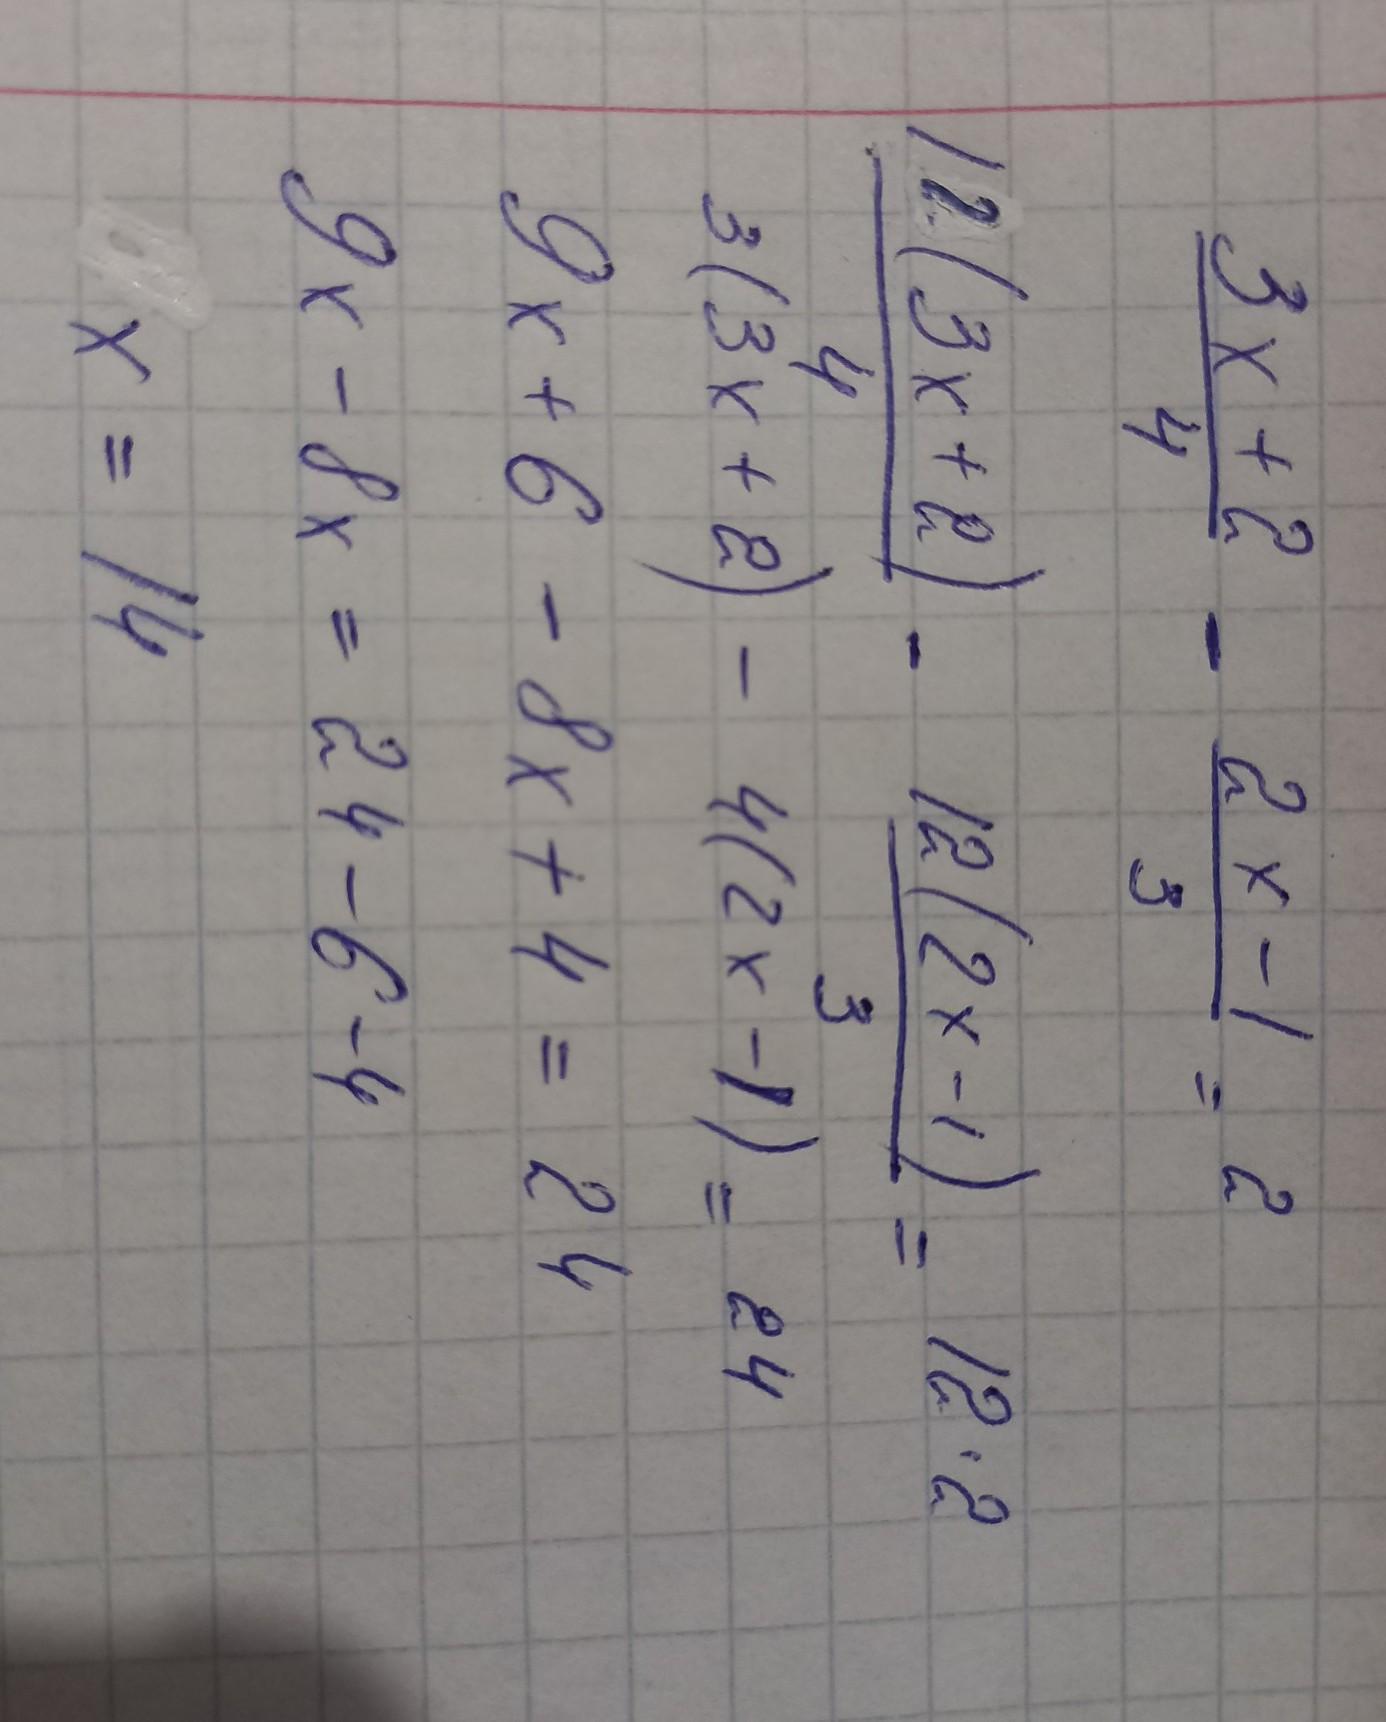 (3x+2)/4 - (2x-1)/3 = 2
12·(3x+2)/4 - 12(2x-1)/3 = 12·2
3(3x+2) - 4(2x-1) = 24
9x+6-8x+4 = 24
9x-8x = 24-6-4
x = 14